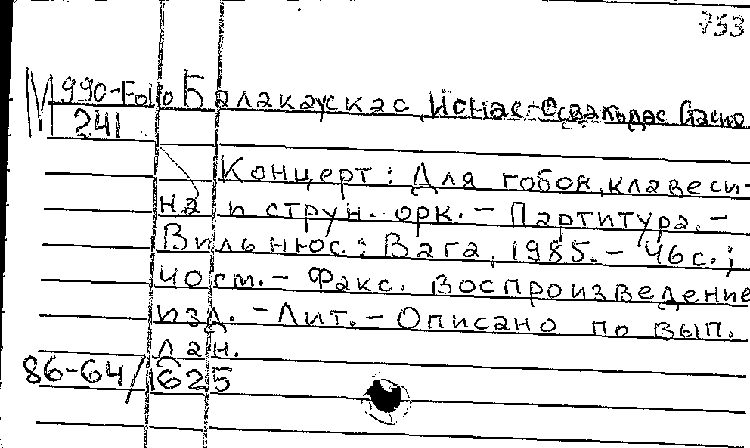 753
М 990-Folio Балакаускас
241
Концерт: Для гобоя, клавеси-
на и струн. орк. - Партитура. -
Вильнюс: Вага, 1985. - 46 с.;
40 см. - Факс. воспроизведение
изд. - Лит. - Описано по вып.
дан.
86-64/1625